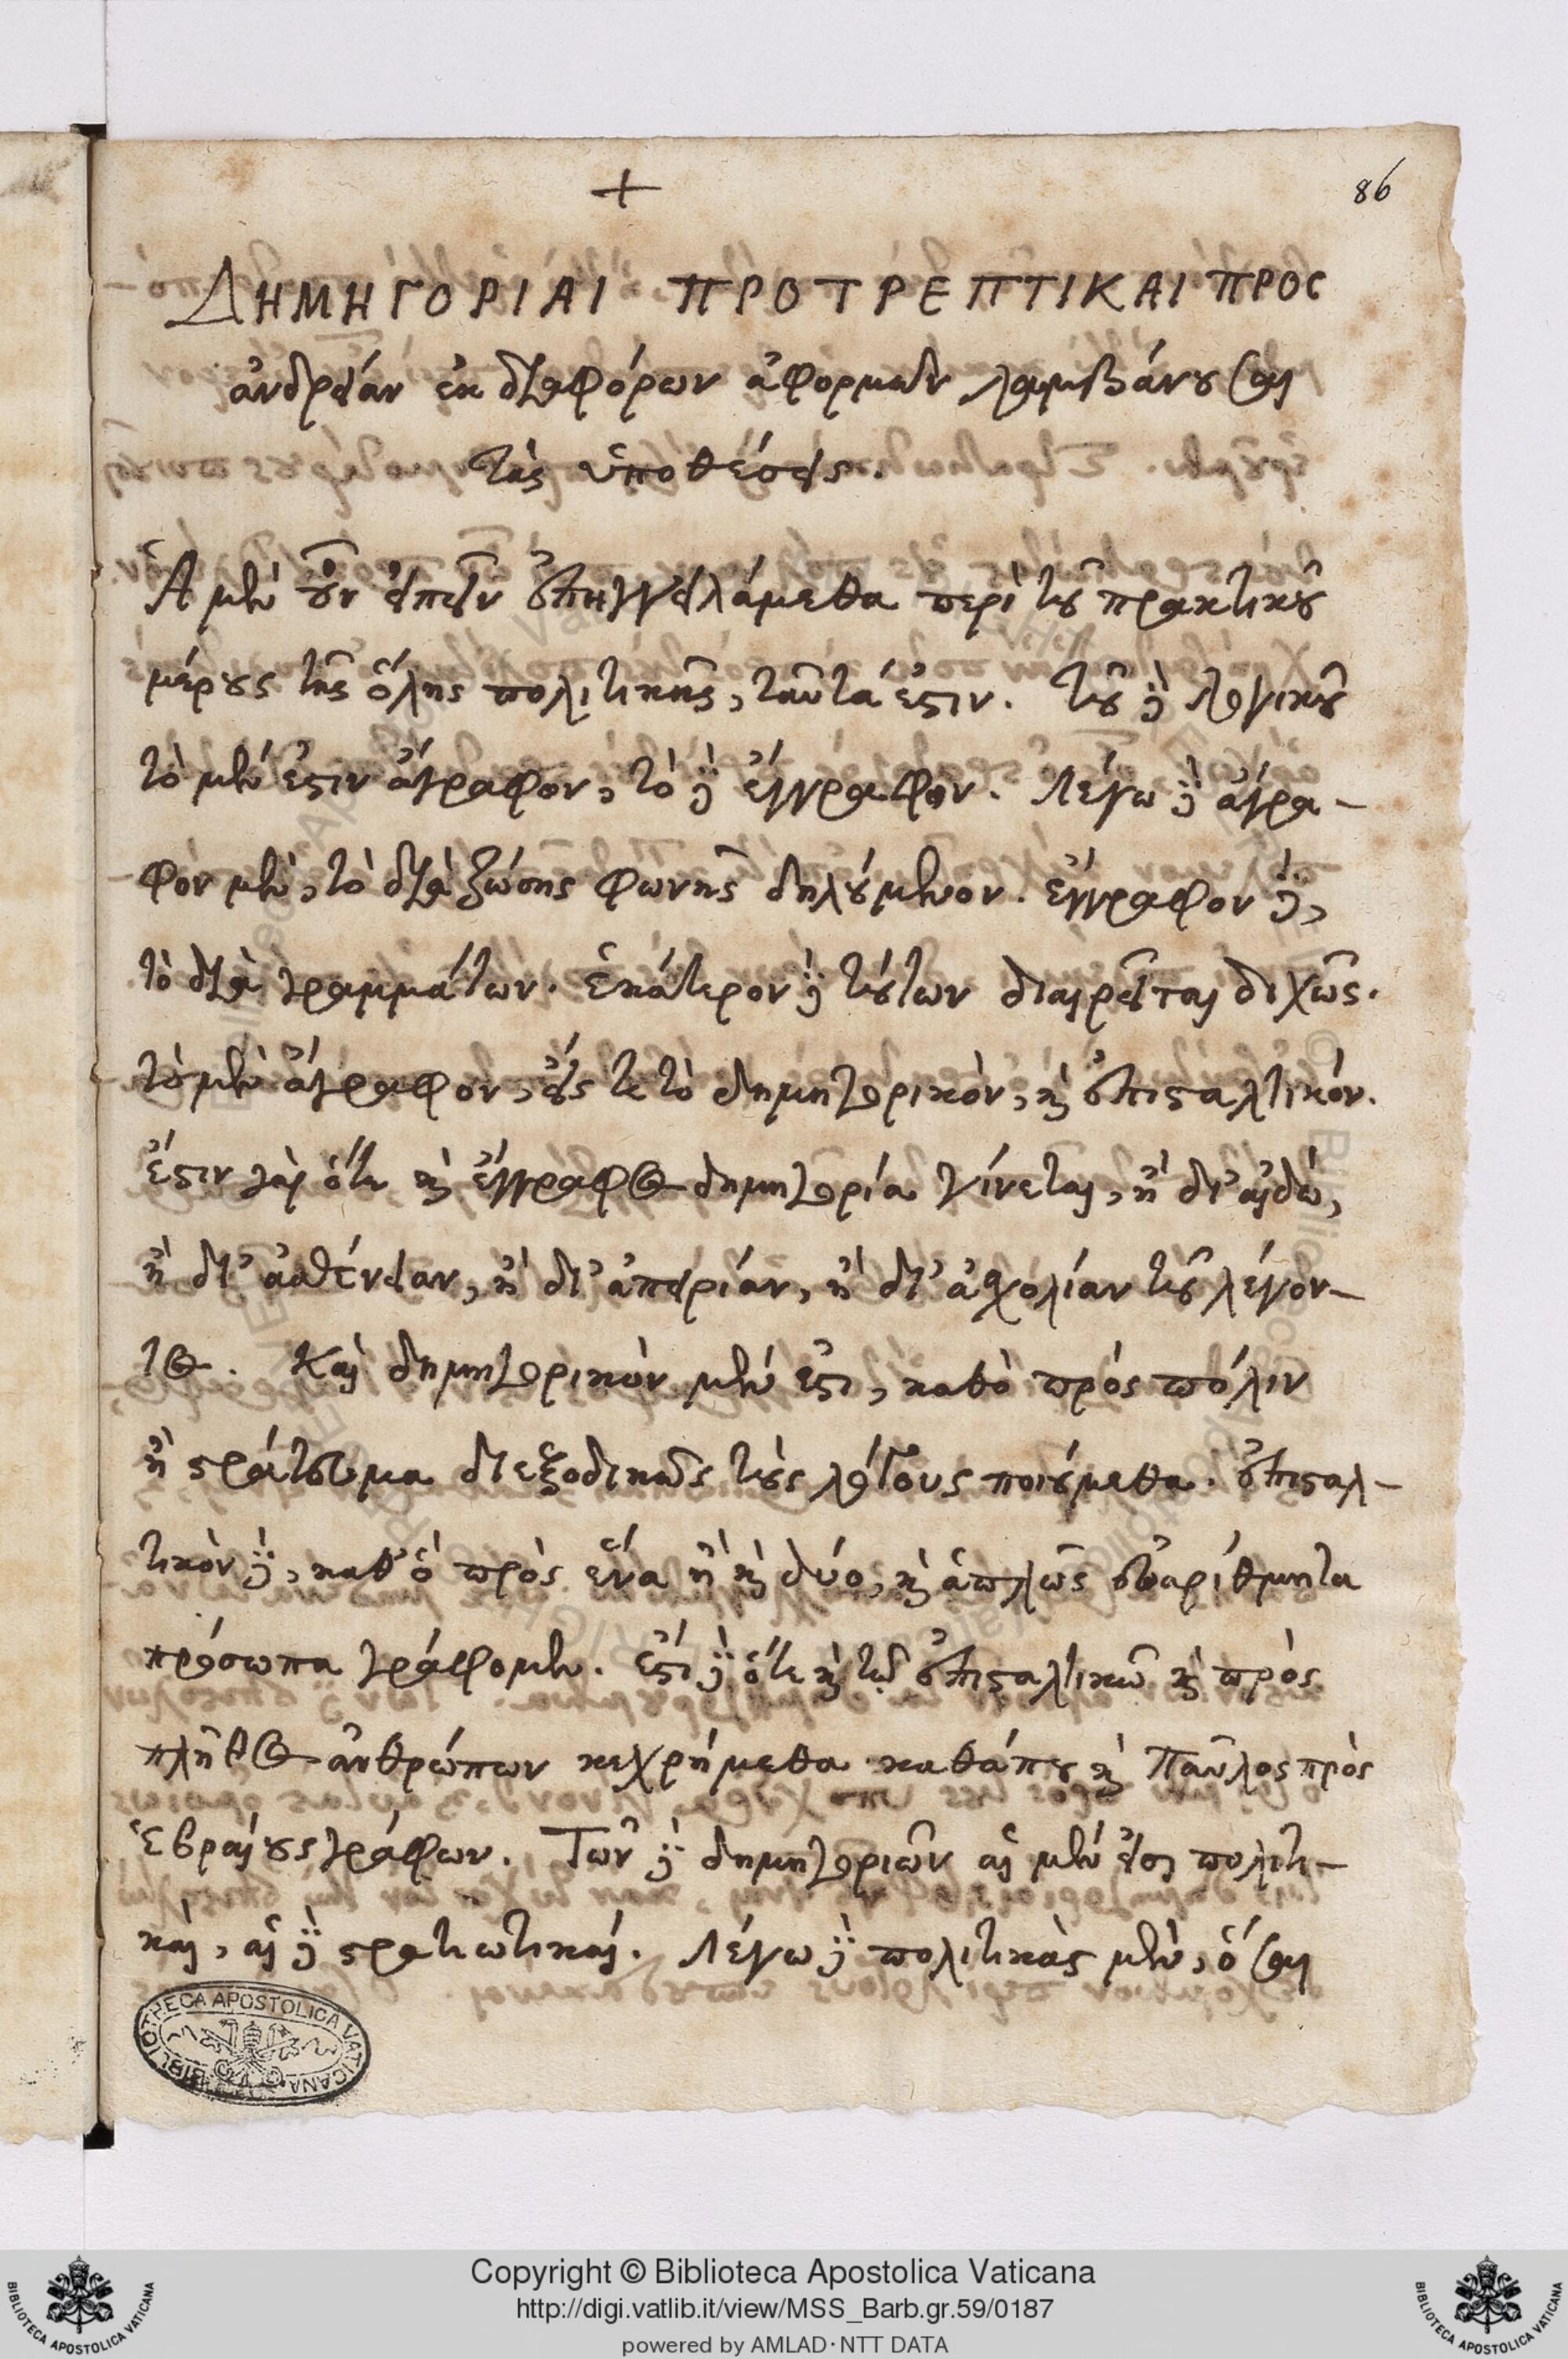 +
86
ΔΗΜΗΓΟΡΙΑΙ ΠΡΟΤΡΕΠΤΙΚΑΙ ΠΡΟΣ
ἀνδρείαν ἐκ διαφόρων ἀφορμῶν λαμβάνουσαι
τὰς ὑποθέσεις.
Ἃ μὲν οὖν εἰπεῖν ἐπηγγειλάμεθα περὶ τοῦ πρακτικοῦ
μέρους τῆς ὅλης πολιτικῆς, ταῦτά ἐστιν. τοῦ δὲ λογικοῦ
τὸ μέν ἐστιν ἄγραφον, τὸ δὲ ἔγγραφον. Λέγω δὲ ἄγρα-
φον μὲν, τὸ διὰ ζώσης φωνῆς δηλούμενον. ἔγγραφον δὲ,
τὸ διὰ γραμμάτων. ἑκάτερον δὲ τούτων διαιρεῖται διχῶς.
τὸ μὲν ἄγραφον, εἴς τε τὸ δημηγορικὸν, καὶ ἐπισταλτικόν.
ἔστιν γὰρ ὅτε καὶ ἔγγραφος δημηγορία γίνεται, ἢ δι' αἰδὼ,
ἢ δι' ἀσθένειαν, ἢ δι' ἀπειρίαν, ἢ δι' ἀσχολίαν τοῦ λέγον-
τος. Καὶ δημηγορικὸν μέν ἐστι, καθὸ πρὸς πόλιν
ἢ στράτευμα διεξοδικῶς τοὺς λόγους ποιούμεθα. ἐπισταλ-
τικὸν δὲ, καθ' ὃ πρὸς ἕνα ἢ καὶ δύο, καὶ ἁπλῶς εὐαρίθμητα
πρόσωπα γράφομεν. ἔστι δὲ ὅτε καὶ τῷ ἐπισταλτικῷ καὶ πρὸς
πλῆθος ἀνθρώπων κεχρήμεθα καθάπου καὶ Παῦλος πρὸς
Ἑβραίους γράφων. Τῶν δὲ δημηγοριῶν αἱ μέν εἰσι πολιτι-
καὶ, αἱ δὲ στρατιωτικαί. Λέγω δὲ πολιτικὰς μὲν, ὅσαι
BIBLIOTHECA APOSTOLICA VATICANA
Copyright © Biblioteca Apostolica Vaticana
http://digi.vatlib.it/view/MSS_Barb.gr.59/0187
powered by AMLAD·NTT DATA
BIBLIOTECA APOSTOLICA VATICANA
BIBLIOTECA APOSTOLICA VATICANA